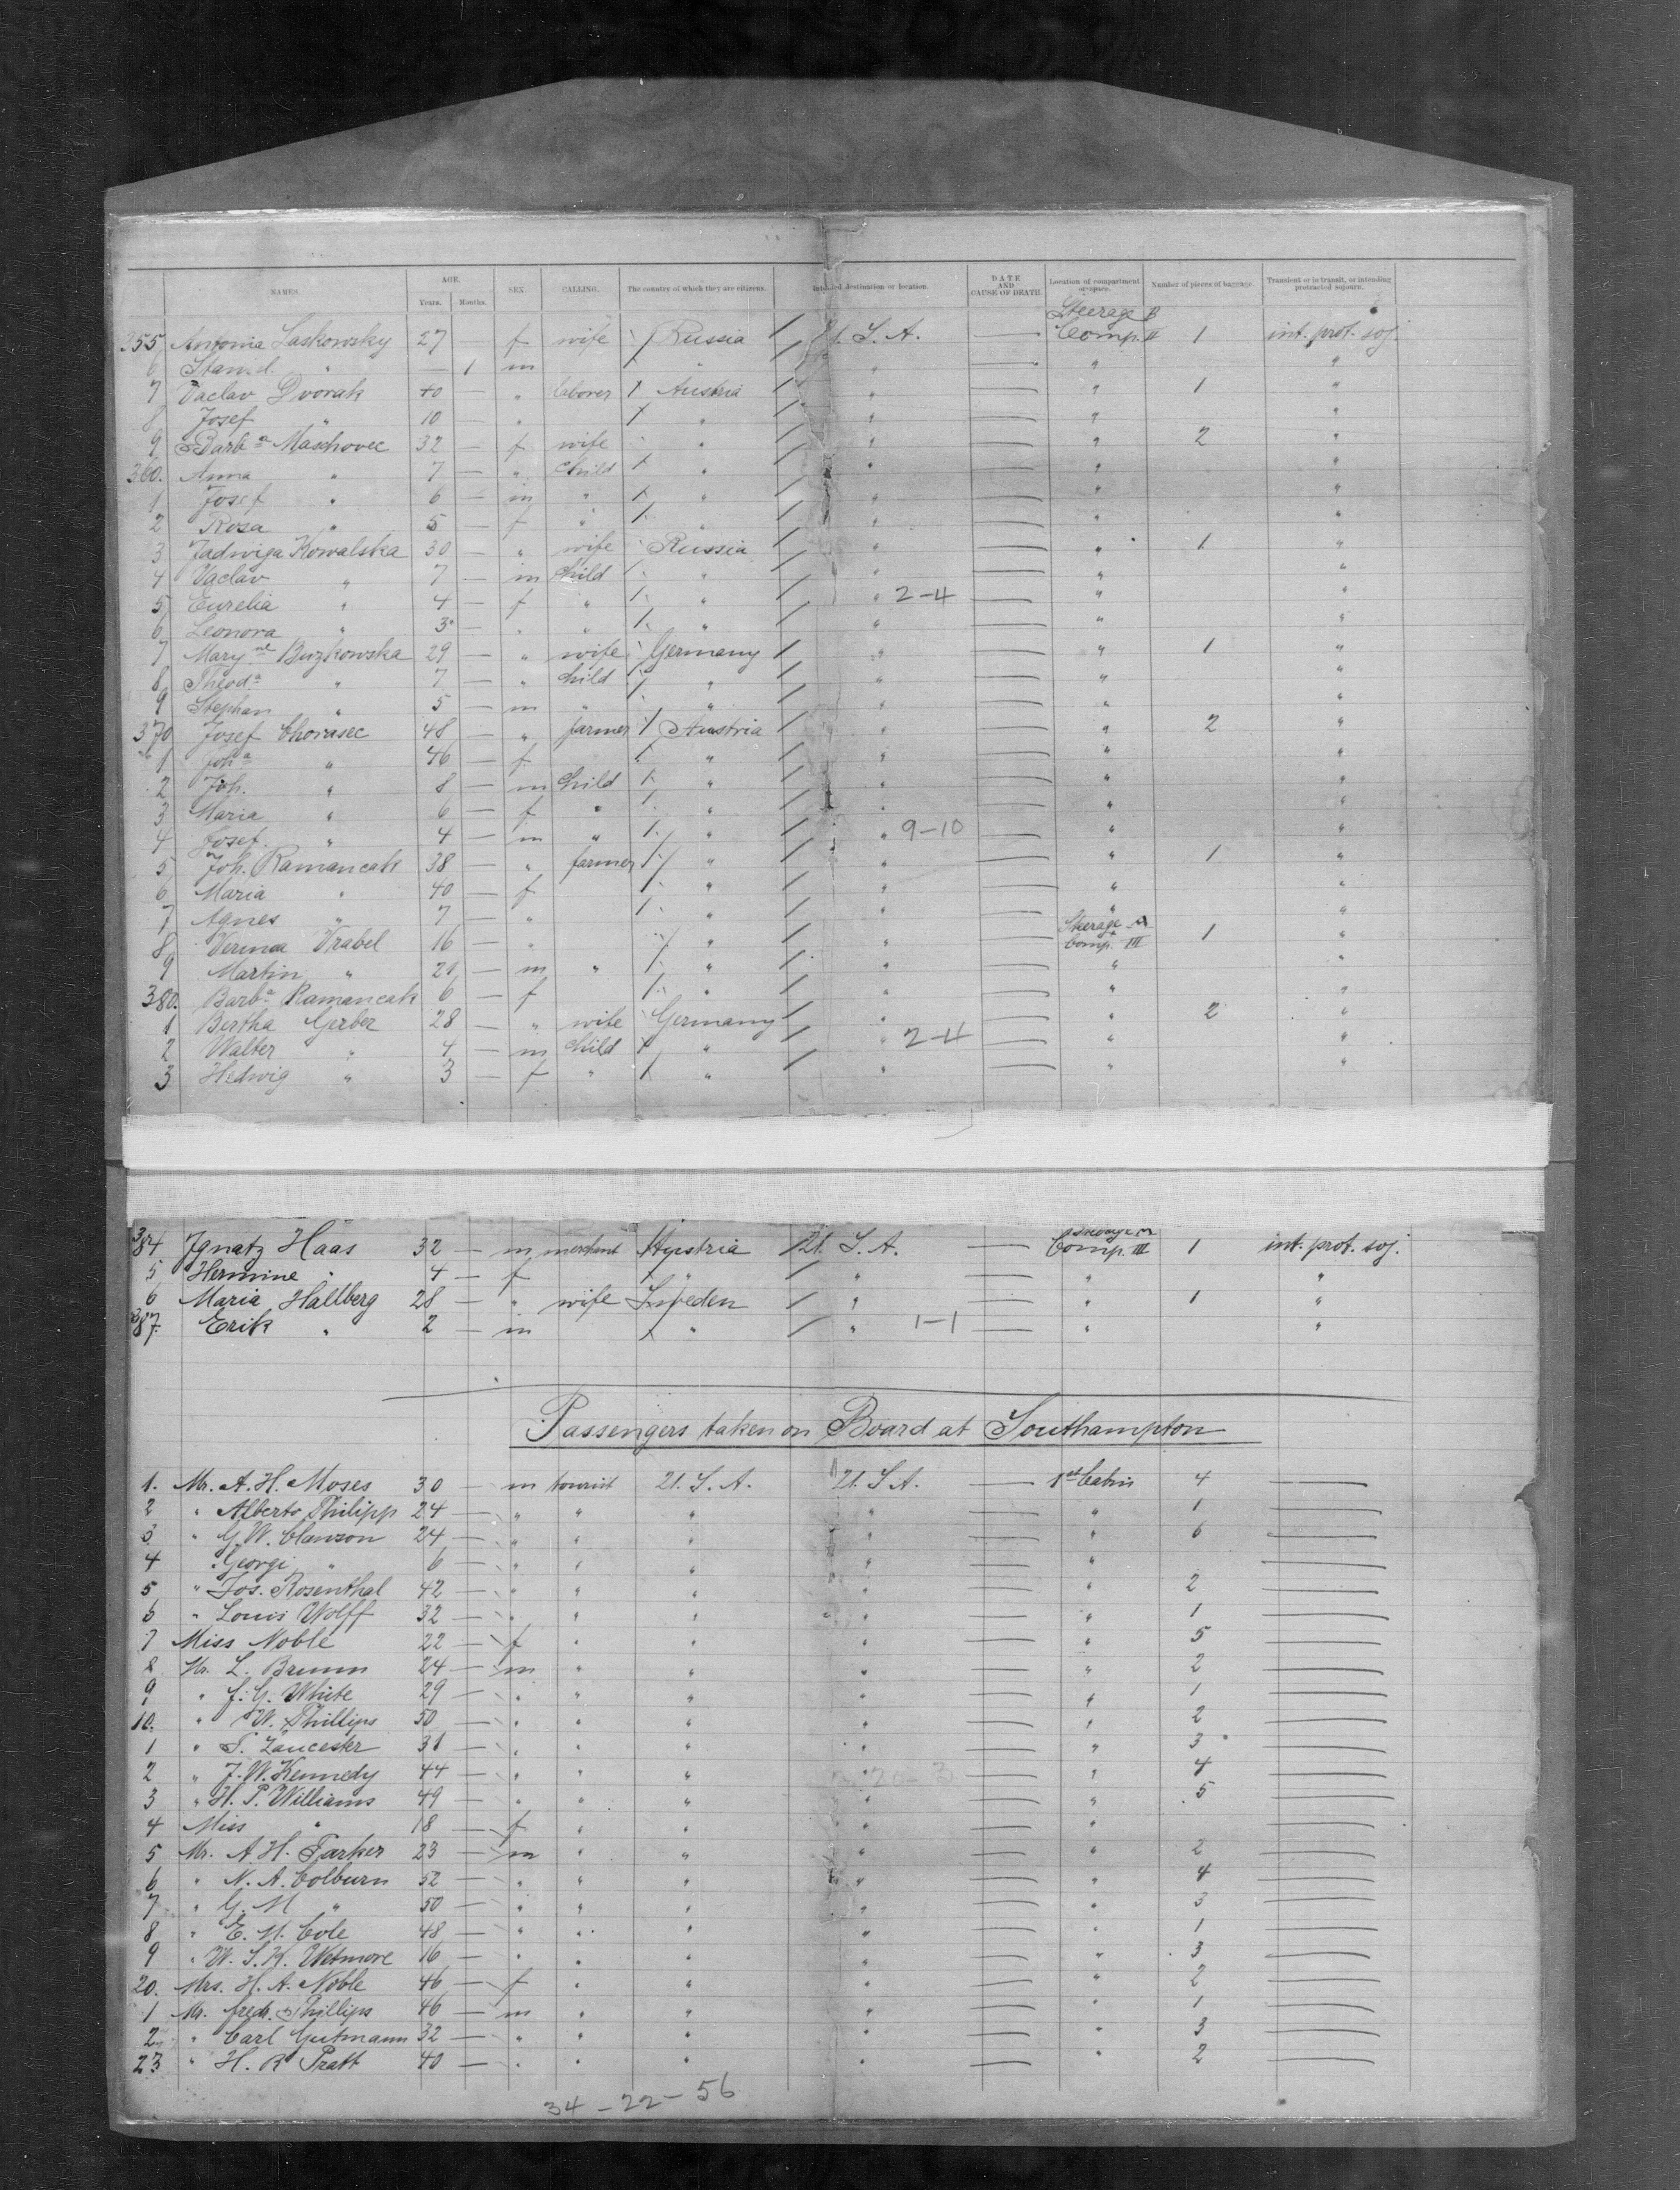 NAMES. AGE. Years. Months. SEX. CALLING. The country of which they are citizens. Intended destination or location. DATE AND CAUSE OF DEATH. Location of compartment or space. Number of pieces of baggage. Transient or in transit, or intending protracted sojourn.
355 Antonia Laskowsky 27 — f wife Russia U.S.A. — Steerage B Comp. II 1 int. prot. soj.
6 Stanisl. " — 1 m " " — " "
7 Vaclav Dvorak 40 — " laborer Austria " — " 1 "
8 Josef " 10 — " " " — " "
9 Barba Maschovec 32 — f wife " " — " 2 "
360. Anna " 7 — " child " " — " "
1 Josef " 6 — m " " " — " "
2 Rosa " 5 — f " " " — " "
3 Jadwiga Kowalska 30 — " wife Russia " — " 1 "
4 Vaclav " 7 — m child " " — " "
5 Eurelia " 4 — f " " " 2-4 — " "
6 Leonora " 3 — " " " " — " "
7 Maryne Buzkowska 29 — " wife Germany " — " 1 "
8 Theoda " 7 — " child " " — " "
9 Stephan " 5 — m " " " — " "
370 Josef Chorasec 48 — " farmer Austria " — " 2 "
1 Joha " 46 — f " " — " "
2 Joh. " 8 — m child " " — " "
3 Maria " 6 — f " " " — " "
4 Josef " 4 — m " " " 9-10 — " "
5 Joh. Ramancak 38 — " farmer " " — " 1 "
6 Maria " 40 — f " " — " "
7 Agnes " 7 — " " " — " "
8 Verinca Vrabel 16 — " " " — Steerage A Comp. III 1 "
9 Martin " 21 — m " " " — " "
380. Barba Ramancak 6 — f " " — " "
1 Bertha Gerber 28 — " wife Germany " — " 2 "
2 Walter " 4 — m child " " 2-4 — " "
3 Hedwig " 3 — f " " " — " "
384 Ignatz Haas 32 — m merchant Austria U.S.A. — Steerage A Comp. III 1 int. prot. soj.
5 Hermine " 4 — f " " — " "
6 Maria Hallberg 28 — " wife Sweden " — " 1 "
387. Erik " 2 — m " " 1-1 — " "
Passengers taken on Board at Southampton
1. Mr. A. H. Moses 30 — m tourist U.S.A. U.S.A. — 1st Cabin 4 —
2 " Alberto Philipp 24 — " " " " — " 1 —
3 " G. W. Clawson 24 — " " " " — " 6 —
4 " Georgi " 6 — " " " " — " —
5 " Jos. Rosenthal 42 — " " " " — " 2 —
6 " Louis Wolff 32 — " " " " — " 1 —
7 Miss Noble 22 — f " " " — " 5 —
8 Mr. L. Brunn 24 — m " " " — " 2 —
9 " J. G. White 29 — " " " " — " 1 —
10. " W. Phillips 50 — " " " " — " 2 —
1 " S. Lancester 31 — " " " " — " 3 —
2 " J. W. Kennedy 44 — " " " " — " 4 —
3 " H. P. Williams 49 — " " " " — " 5 —
4 Miss " 18 — f " " " — " —
5 Mr. A. H. Parker 23 — m " " " — " 2 —
6 " N. A. Colburn 52 — " " " " — " 4 —
7 " G. M. " 50 — " " " " — " 3 —
8 " E. M. Cole 48 — " " " " — " 1 —
9 " W. S. K. Wetmore 16 — " " " " — " 3 —
20. Mrs. H. A. Noble 46 — f " " " — " 2 —
1 Mr. Fredr. Phillips 46 — m " " " — " 1 —
2 " Carl Gutmann 32 — " " " " — " 3 —
23 " H. R. Pratt 40 — " " " " — " 2 —
34-22-56